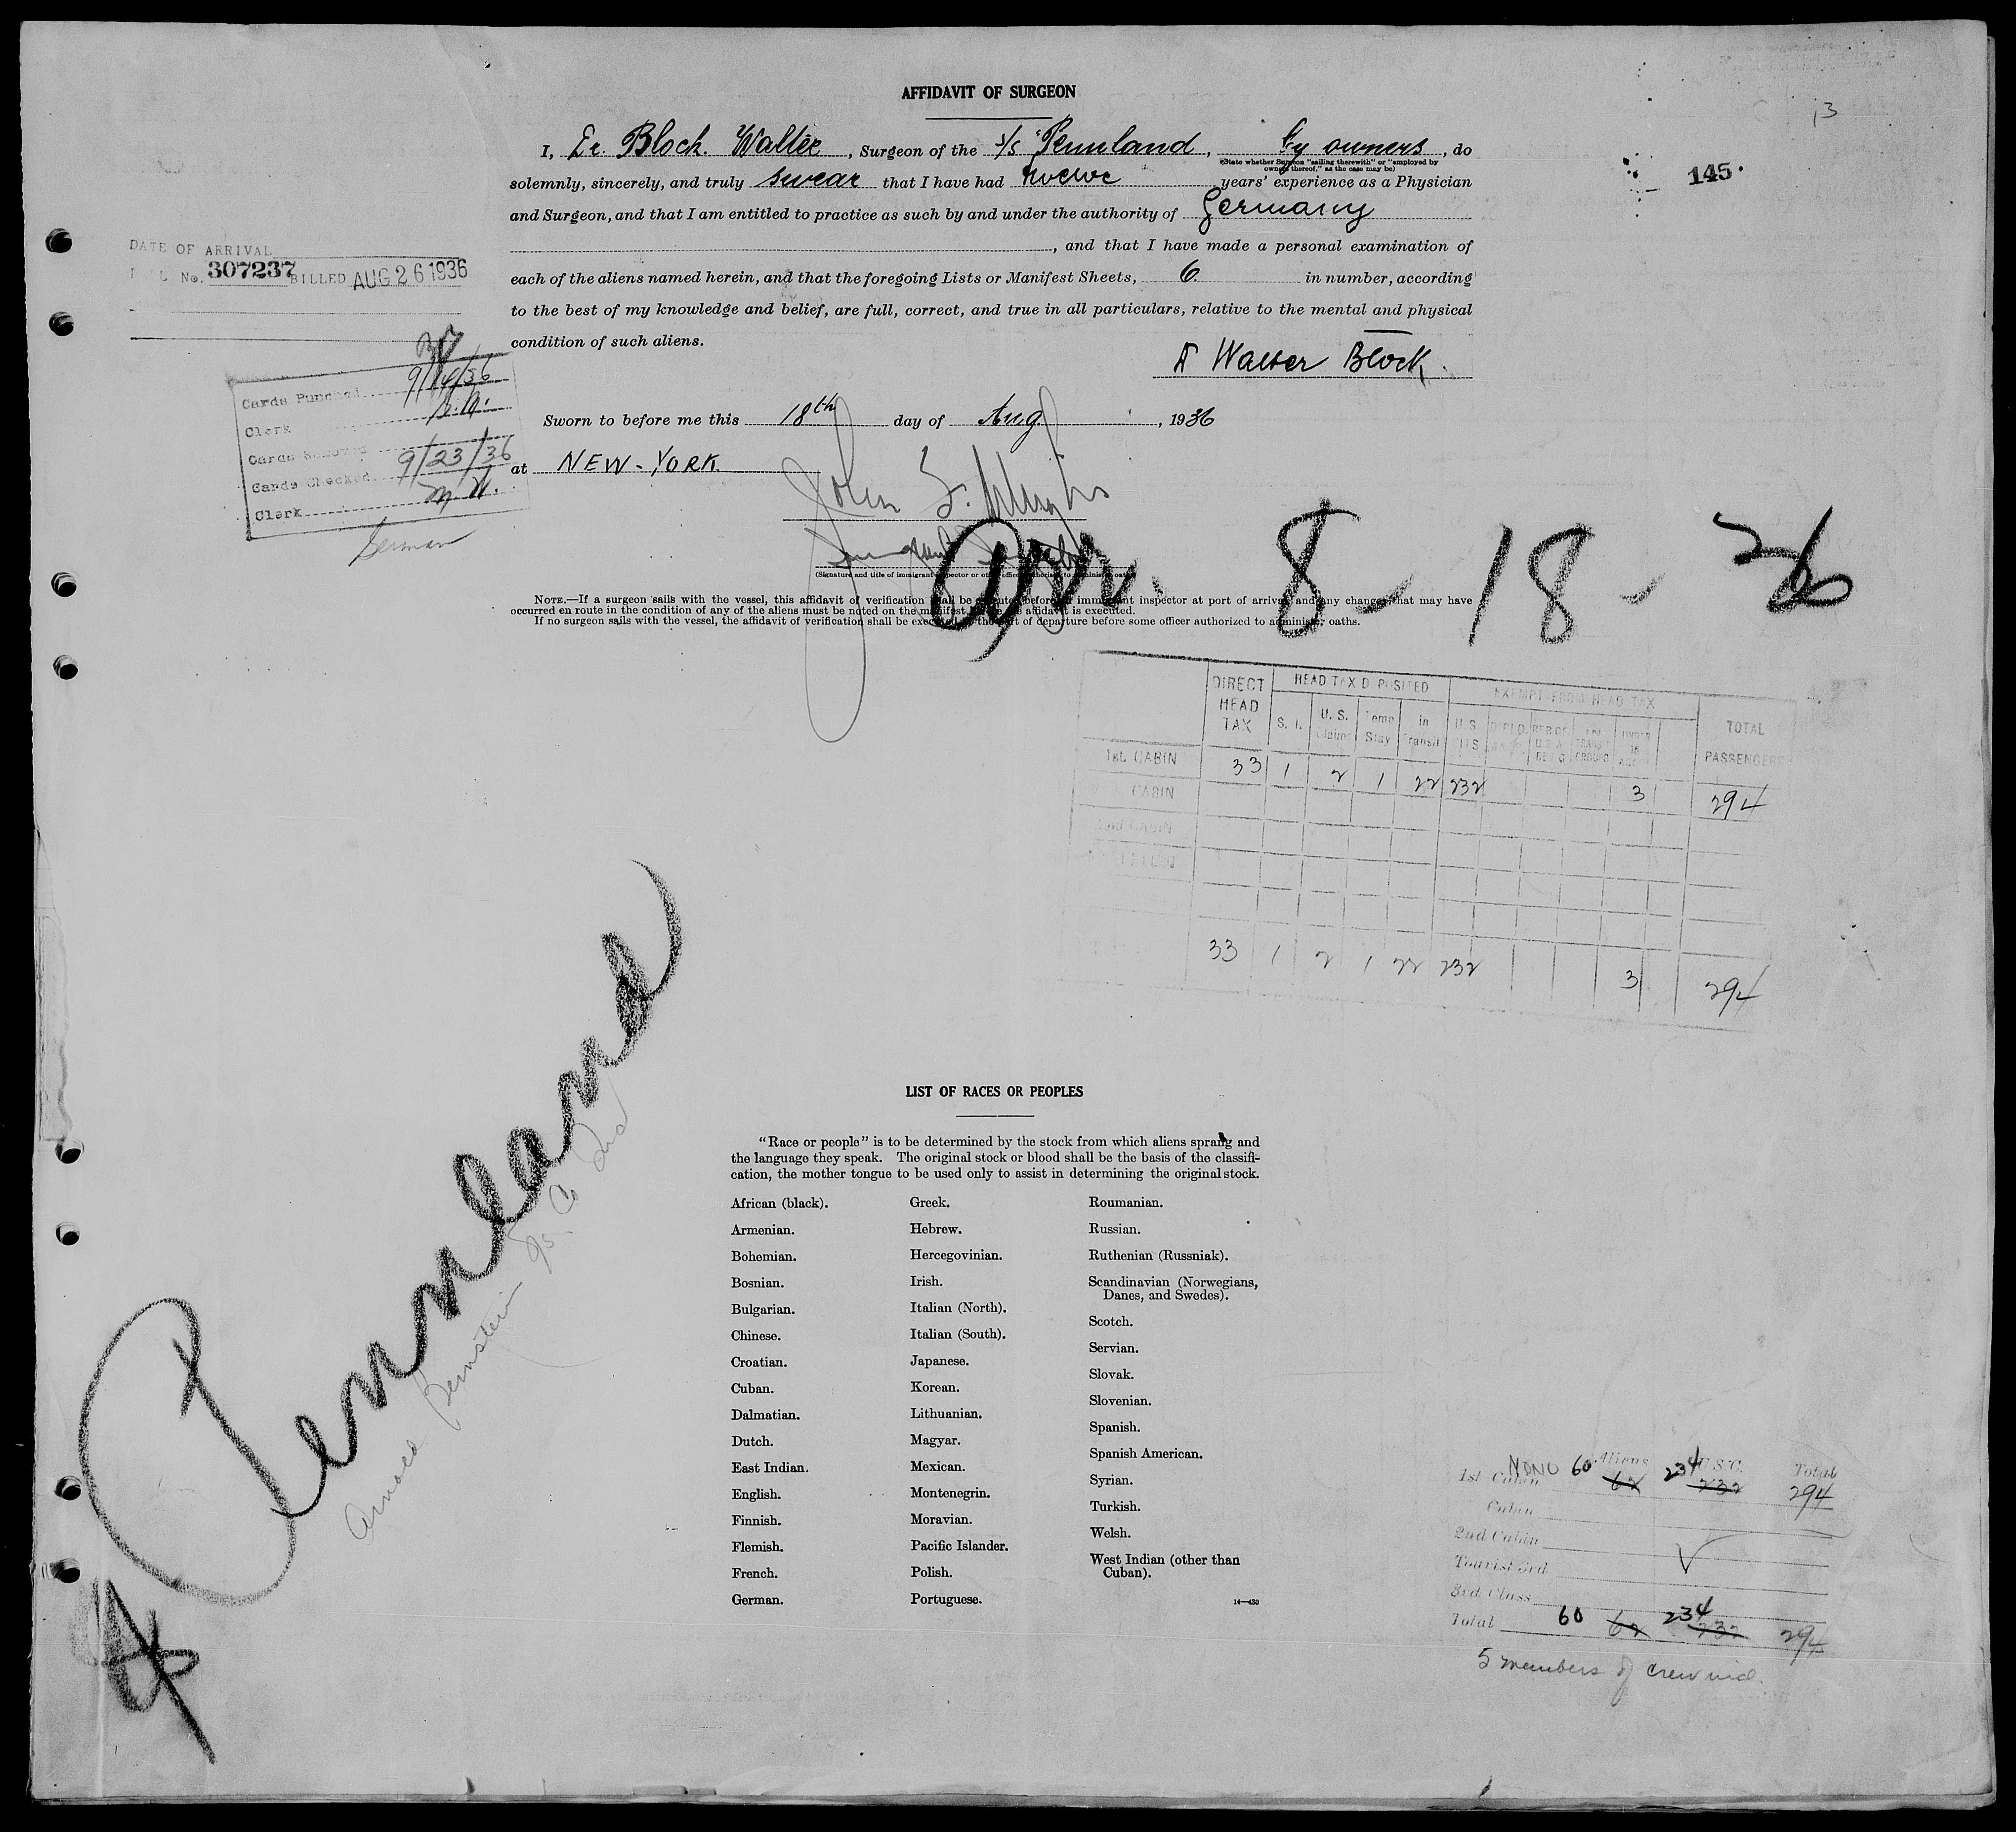 AFFIDAVIT OF SURGEON
I, Dr. Bloch. Walter, Surgeon of the S/S "Pennland, by owners, do
*(State whether Surgeon "sailing therewith" or "employed by
owners thereof," as the case may be)
solemnly, sincerely, and truly swear that I have had twelve years' experience as a Physician
and Surgeon, and that I am entitled to practice as such by and under the authority of Germany
, and that I have made a personal examination of
each of the aliens named herein, and that the foregoing Lists or Manifest Sheets, 6. in number, according
to the best of my knowledge and belief, are full, correct, and true in all particulars, relative to the mental and physical
condition of such aliens.
Walter Bloch.
Sworn to before me this 18th day of Aug., 1936
at NEW-YORK.
John
(Signature and title of immigrant inspector or other officer authorized to administer oaths)
NOTE.—If a surgeon sails with the vessel, this affidavit of verification shall be executed before an immigrant inspector at port of arrival and any changes that may have
occurred en route in the condition of any of the aliens must be noted on the manifest before the affidavit is executed.
If no surgeon sails with the vessel, the affidavit of verification shall be executed at the port of departure before some officer authorized to administer oaths.
13
145.
DATE OF ARRIVAL
No. 307237 BILLED AUG 26 1936
Cards Punched 9/14/36
Clerk
Cards
Cards Checked 9/23/36
Clerk M. W.
German
arr. 8-18-36
DIRECT HEAD TAX HEAD TAX DEPOSITED EXEMPT FROM HEAD TAX TOTAL PASSENGERS
S. I. U. S. Claims Temp Stay in Transit U S CITS DIPLO. UNDER 16
1st. CABIN 33 1 2 1 22 232 3 294
CABIN
2nd CABIN
33 1 2 1 22 232 3 294
Pennland
Arnold Bernstein SS. Co
LIST OF RACES OR PEOPLES
"Race or people" is to be determined by the stock from which aliens sprang and
the language they speak. The original stock or blood shall be the basis of the classifi-
cation, the mother tongue to be used only to assist in determining the original stock.
African (black).
Armenian.
Bohemian.
Bosnian.
Bulgarian.
Chinese.
Croatian.
Cuban.
Dalmatian.
Dutch.
East Indian.
English.
Finnish.
Flemish.
French.
German.
Greek.
Hebrew.
Hercegovinian.
Irish.
Italian (North).
Italian (South).
Japanese.
Korean.
Lithuanian.
Magyar.
Mexican.
Montenegrin.
Moravian.
Pacific Islander.
Polish.
Portuguese.
Roumanian.
Russian.
Ruthenian (Russniak).
Scandinavian (Norwegians,
Danes, and Swedes).
Scotch.
Servian.
Slovak.
Slovenian.
Spanish.
Spanish American.
Syrian.
Turkish.
Welsh.
West Indian (other than
Cuban).
14—430
Aliens U.S.C. Total
1st Cabin 60 62 234 232 294
Cabin
2nd Cabin
Tourist 3rd
3rd Class
Total 60 62 234 232 294
5 members of crew